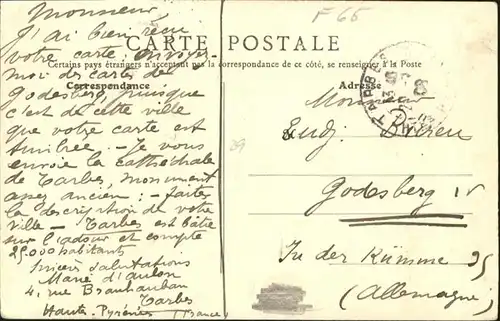 F 65
CARTE POSTALE
Certains pays étrangers n'acceptant pas la correspondance de ce côté, se renseigner à la Poste
Correspondance
Adresse
Monsieur,
J'ai bien reçu
votre carte, envoyez-
moi des cartes de
Godesberg, puisque
c'est de cette ville
que votre carte est
timbrée. - Je vous
envoie la cathédrale
de Tarbes, monument
assez ancien; - faites
la description de votre
ville - Tarbes est bâtie
sur l'adour et compte
25.000 habitants
salutations
Marie d'Aulon
4, rue Brauhauban
Tarbes
Hautes-Pyrénées (France)
Monsieur
Godesberg
In der Kümme 95
(Allemagne)